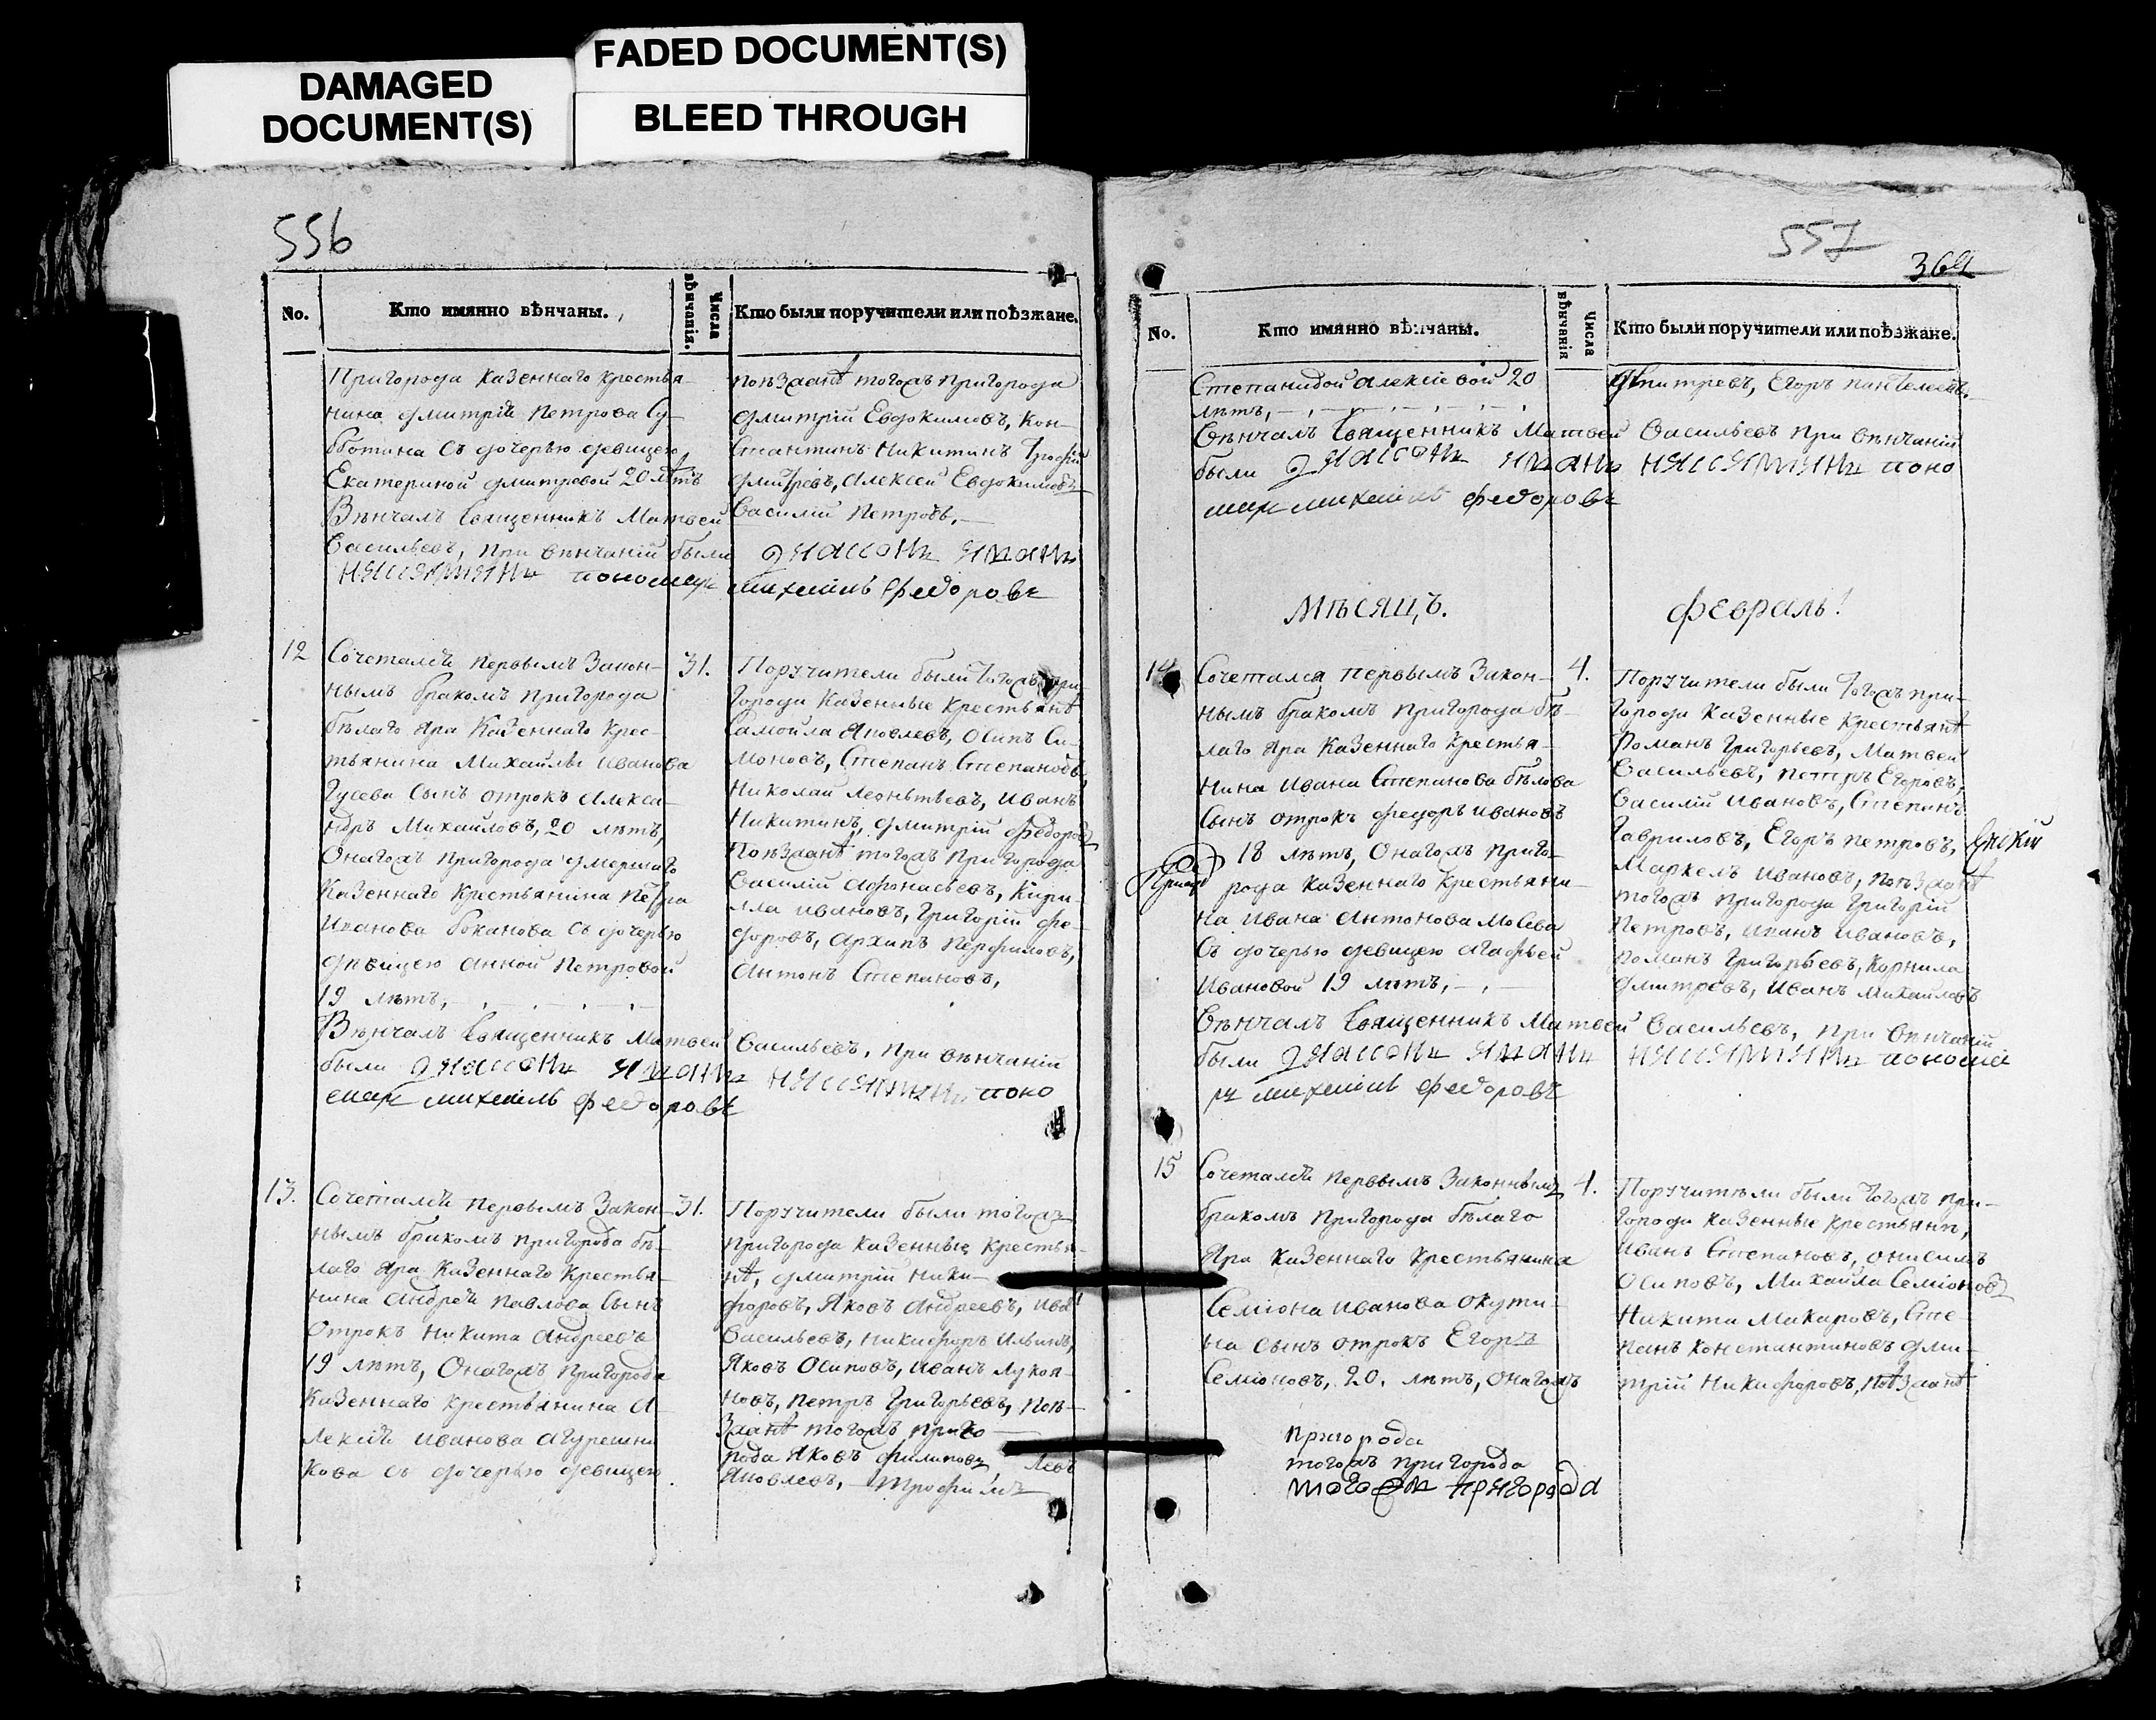 DAMAGED
DOCUMENT(S)
FADED DOCUMENT(S)
BLEED THROUGH
556
No.
Кто имянно вѣнчаны.
Числа
вѣнчанія.
Кто были поручители или поѣзжане.
Пригорода казеннаго крестья-
нина Дмитрій Петрова Су-
бботина съ дочерью девицею
Екатериной Дмитревой 20 лѣтъ
Вѣнчалъ Священникъ Матвей
Васильевъ, При венчаній были
пономарь Михаилъ Федоровъ
поѣзданѣ тогожъ Пригорода
Дмитрій Евдокимовъ, Кон-
стантинъ Никитинъ Трофим
Дмитревъ, Алексей Евдокимовъ
Василій Петровъ,
12
Сочетался первымъ Закон-
нымъ бракомъ Пригорода
бѣлаго Яра Казеннаго Крес-
тьянина Михайлы Иванова
Гусева Сынъ отрокъ Алекса-
ндръ Михайловъ, 20 лѣтъ,
Онагожъ Пригорода умершаго
Казеннаго Крестьянина Петра
Иванова Боканова Съ дочерью
девицею Анной Петровой
19 лѣтъ,
Вѣнчалъ Священникъ Матвей Васильевъ, При вѣнчаній
были
поно
марь Михаилъ Федоровъ
31.
Поручители были тогожъ при
города Казенные Крестьянѣ
Самойла Яковлевъ, Осипъ Си-
моновъ, Степанъ Степановъ,
Николай Леонтьевъ, Иванъ
Никитинъ, Дмитрій Федоровъ
Поѣзданѣ тогожъ Пригорода
Василій Афонасьевъ, Кири-
лла Ивановъ, Григорій Фе-
доровъ, Архипъ Перфиловъ,
Антонъ Степановъ,
13.
Сочетался первымъ Закон-
нымъ бракомъ Пригорода бѣ-
лаго Яра Казеннаго Крестья-
нина Андрей Павлова Сынъ
Отрокъ Никита Андреевъ
19 лѣтъ, Онагожъ Пригорода
Казеннаго Крестьянина А-
лексій Иванова Агурешни
кова съ дочерью девицею
31.
Поручители были тогожъ
пригорода Казенные Крестья-
нѣ, Дмитрій Ники-
форовъ, Яковъ Андреевъ, Ива
Васильевъ, Никифоръ Ильинъ,
Яковъ Осиповъ, Иванъ Лукоя-
новъ, Петръ Григорьевъ, Поѣ-
зданѣ тогожъ приго
рода Яковъ Филиповъ Левъ
Яковлевъ, Трофимъ
557
369
No.
Кто имянно вѣнчаны.
Числа
вѣнчанія
Кто были поручители или поѣзжане.
Степанидой Алексіевой 20
лѣтъ,
Дмитревъ, Егоръ Пантелеевъ.
Вѣнчалъ Священникъ Матвей Васильевъ При вѣнчаній
были
поно
марь Михаилъ Федоровъ
Мѣсяцъ. Февраль!
14
Сочетался первымъ Закон-
нымъ бракомъ Пригорода бѣ-
лаго Яра Казеннаго Крестья-
нина Ивана Степанова Бѣлова
Сынъ отрокъ Федоръ Ивановъ
18 лѣтъ, Онагожъ Приго-
рода Казеннаго Крестьяни-
на Ивана Антонова Мосева
Съ дочерью девицею Агафьей
Ивановой 19 лѣтъ,
Вѣнчалъ Священникъ Матвей Васильевъ, При вѣнчаній
были
понома
рь Михаилъ Федоровъ
4.
Поручители были тогожъ при-
города Казенные Крестьянѣ
Романъ Григорьевъ, Матвей
Васильевъ, Петръ Егоровъ,
Василій Ивановъ, Степанъ
Гавриловъ, Егоръ Петровъ,
Маркелъ Ивановъ, Поѣзданѣ
тогожъ Пригорода Григорій
Петровъ, Иванъ Ивановъ,
Романъ Григорьевъ, Корнила
Дмитревъ, Иванъ Михайловъ
15
Сочетался первымъ Законнымъ
бракомъ Пригорода бѣлаго
Яра Казеннаго Крестьянина
Семіона Иванова Окути-
на сынъ отрокъ Егоръ
Семіоновъ, 20. лѣтъ, Онагожъ
Пригорода
тогожъ пригорода
тогожъ пригорода
4.
Поручители были тогожъ При-
города Казенные Крестьянѣ,
Иванъ Степановъ, Онисимъ
Осиповъ, Михайла Семіоновъ
Никита Макаровъ, Сте
панъ Константиновъ Дми-
трій Никифоровъ, Поѣзданѣ